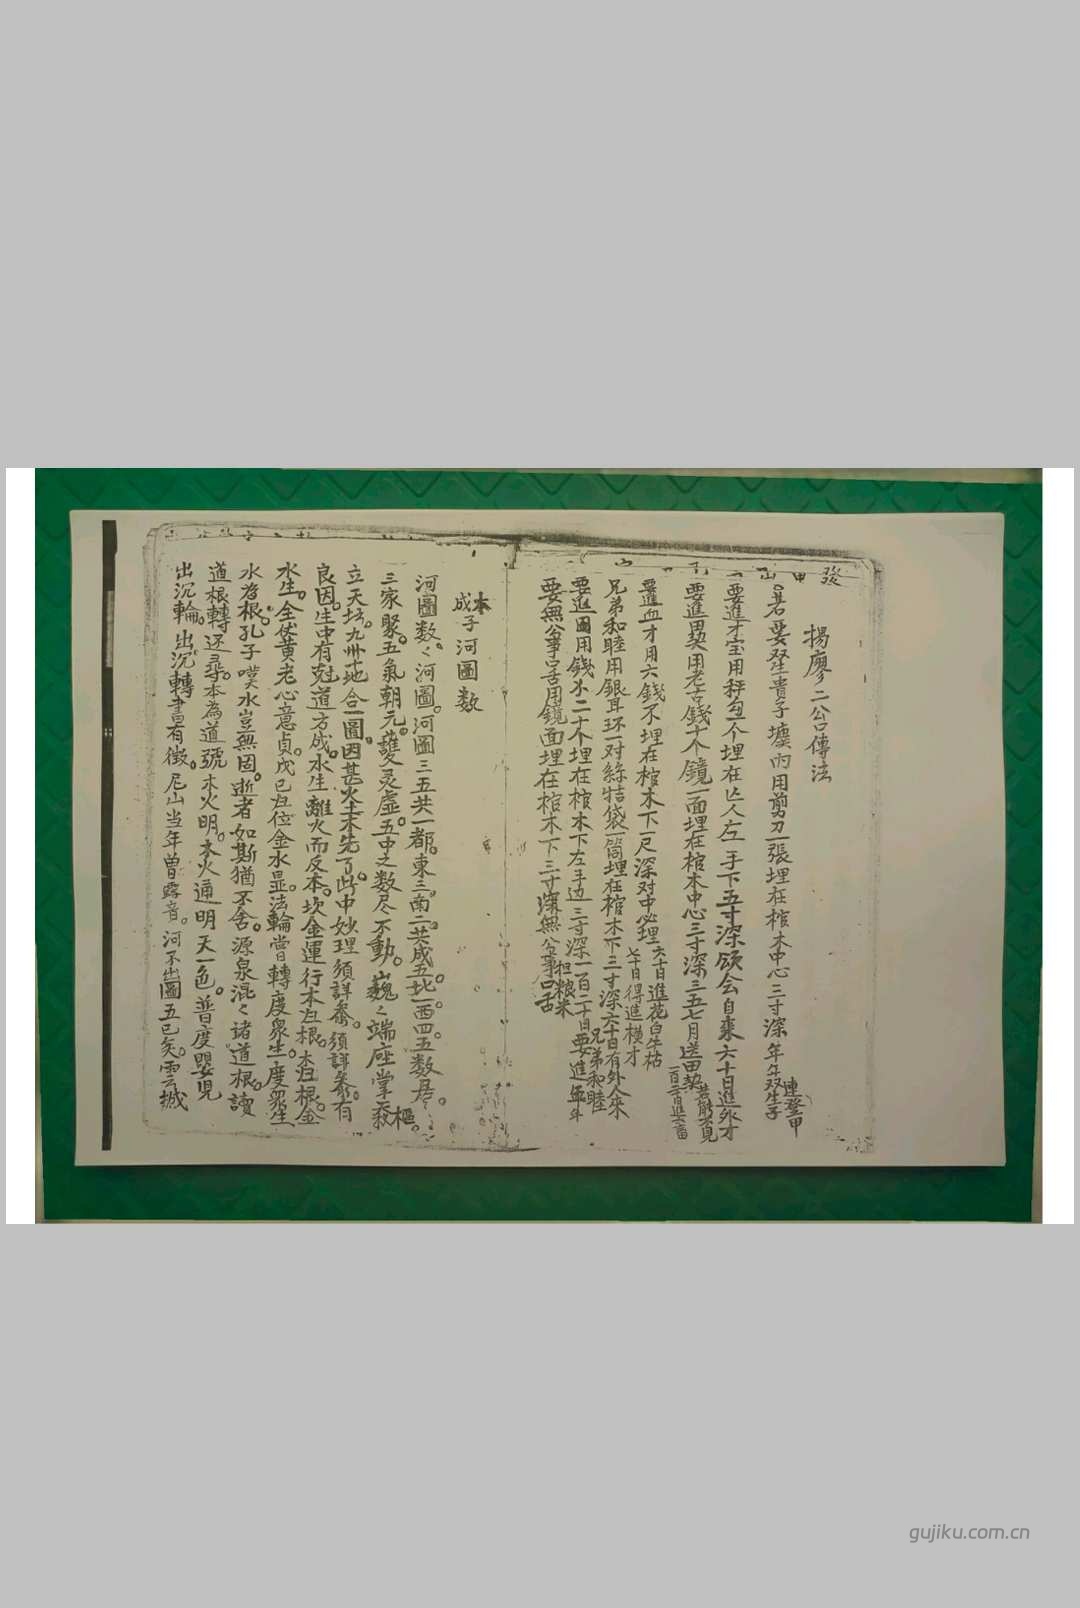 楊廖二公傳法
若要双生貴子壙內用剪刀一張埋在棺木中心三寸深年年双生子連登甲
要進才宝用秤勾一个埋在亡人左手下五寸深頌会自来六十日進外才
要進田契用老古錢十个鏡一面埋在棺木中心三寸深三五七月送田契若能不見一百二十日進六畜
要進血才用六錢不埋在棺木下一尺深对中必理六十日進花白牛牯七十日得進横才
兄弟和睦用銀耳环一对絲袋一筒埋在棺木下三寸深六十日有外人来兄弟和睦
要進田用錢二十个埋在棺木下左手边三寸深一百二十日要進年年担粮米
要無公事口舌用鏡一面埋在棺木下三寸深無公事口舌
本成子河圖数
河圖数々河圖。河圖三五共一都。東三。南二共成五。北一西四。五数是。
三家聚。五氣朝元。灵虚。五中之数尽不動。巍々端座掌天樞。
立天坛。九州地合一圖。因甚火土木先了。此中妙理須詳参。須詳参。有
良因。生中有克道方成。水生離火而反本。坎金運行本归根。本归根。金
水生。全仗黄老心意貞。戊己归位金水显。法輪常轉度衆生。度衆生
水為根。孔子嘆水豈無因。逝者如斯猶不舍。源泉混々诸道根。讀
道根轉还尋。本為道號木火明。木火通明天一色。普度嬰児
出沉輪。出沉轉書有徵。尼山当年曾露音。河不出圖五已矣。雲城
gujiku.com.cn